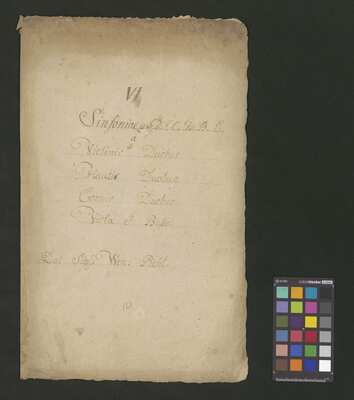 VI
Sinfonine
a
Violinis Duobus
Flautis Duobus
Cornis Duobus
Viola et Basso
Del Sigre Wen: Pichl